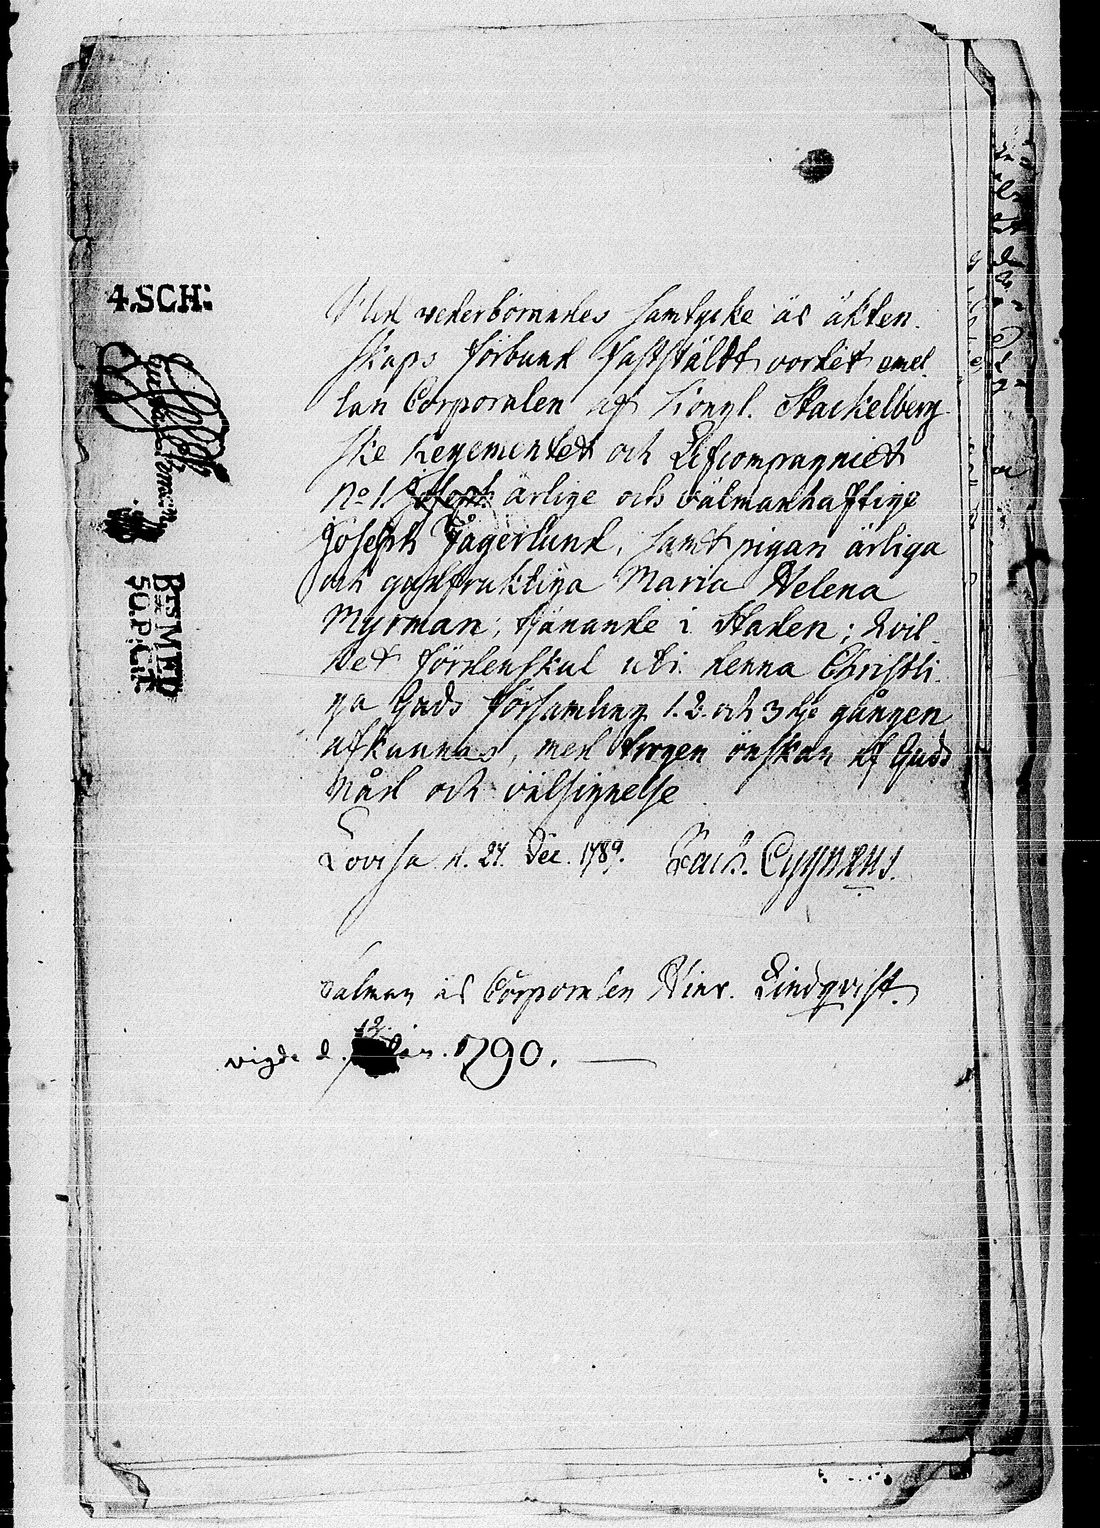 4.SCH:
BtsMED
50.P:Ct.
Med vederbörandes samtycke är äkten
skaps förbund fastställt vordet emel
lan Corporalen af Kongl. Stackelberg
ske Regementet och Lifcompagniet
No 1. Joseph ärlige och välmanhaftige
Joseph Fågerlund, samt pigan ärliga
och gudfruktiga Maria Helena
Myrman, tjänande i Staden; hvil
ket fördenskul uti denna Christli
ga Guds församling 1. 2. och 3dje gången
afkunnas, med trogen önskan af Guds
Nåd och välsignelse
Lovisa d. 27. Dec. 1789. Zach. Cygnæus.
Talman är Corporalen Hinr. Lindqvist.
vigde d. 12 Jan. 1790.